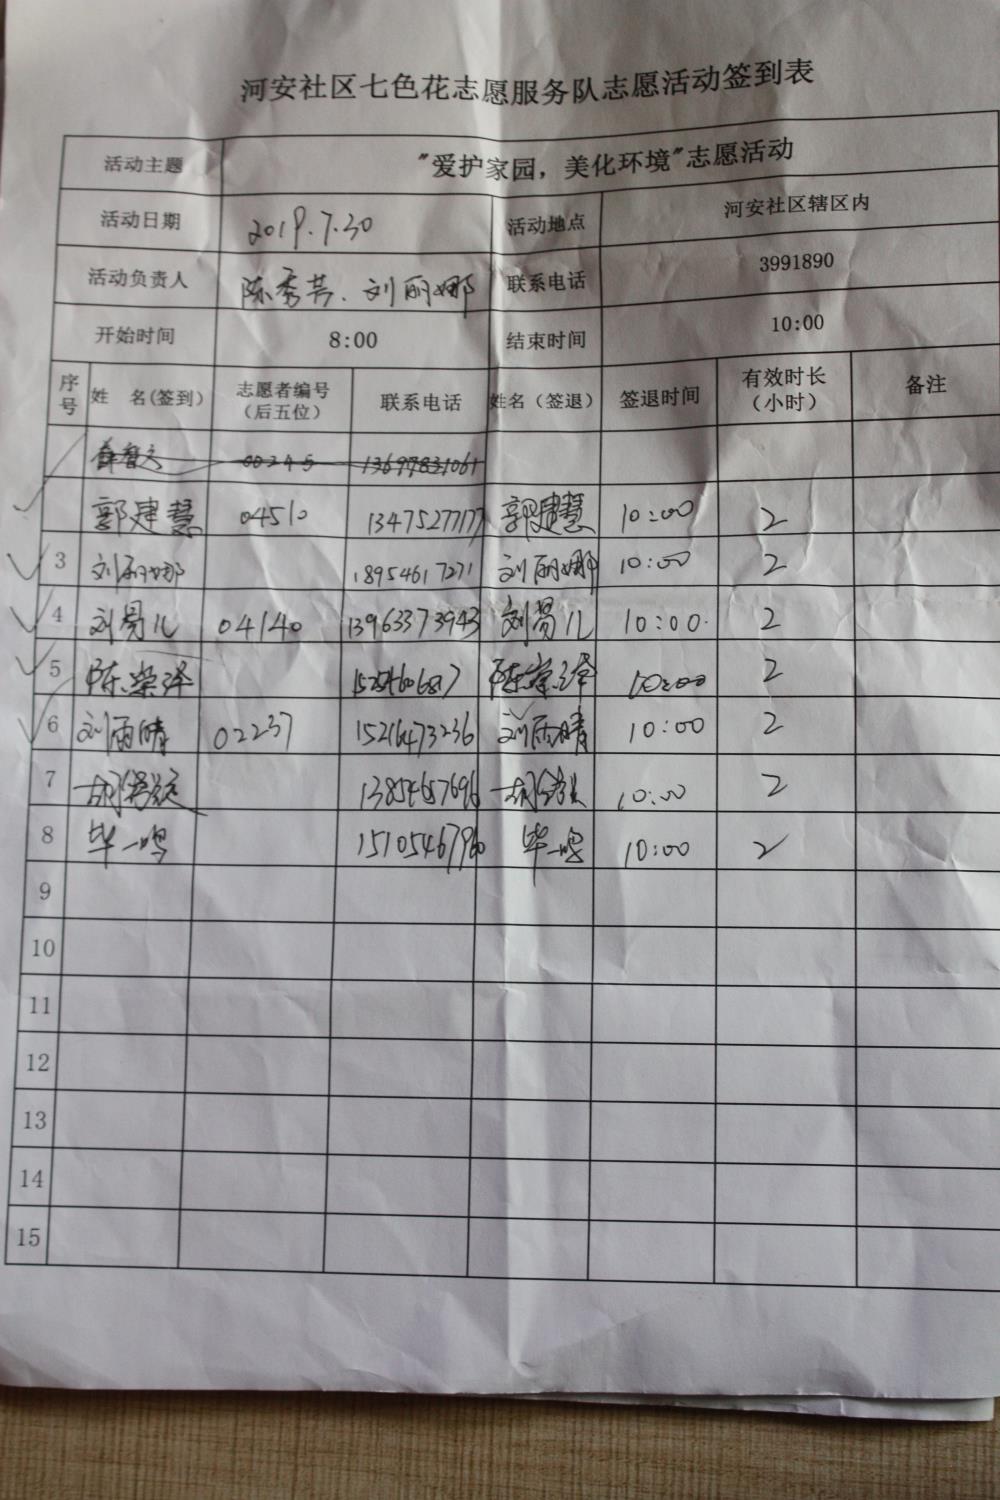 河安社区七色花志愿服务队志愿活动签到表
活动主题 "爱护家园，美化环境"志愿活动
活动日期 2019.7.30 活动地点 河安社区辖区内
活动负责人 陈秀芳、刘丽娜 联系电话 3991890
开始时间 8:00 结束时间 10:00
序号 姓 名(签到) 志愿者编号（后五位） 联系电话 姓名（签退） 签退时间 有效时长（小时） 备注
00245 13697831061
郭建慧 04510 13475277177 郭建慧 10:00 2
3 刘丽娜 18954617271 刘丽娜 10:00 2
4 刘易儿 04140 13963373943 刘易儿 10:00. 2
5 陈崇泽 陈崇泽 10:00 2
6 刘雨晴 02237 15216473236 刘雨晴 10:00 2
7 13854657696 10:00 2
8 毕一鸣 15105467960 毕一鸣 10:00 2
9
10
11
12
13
14
15